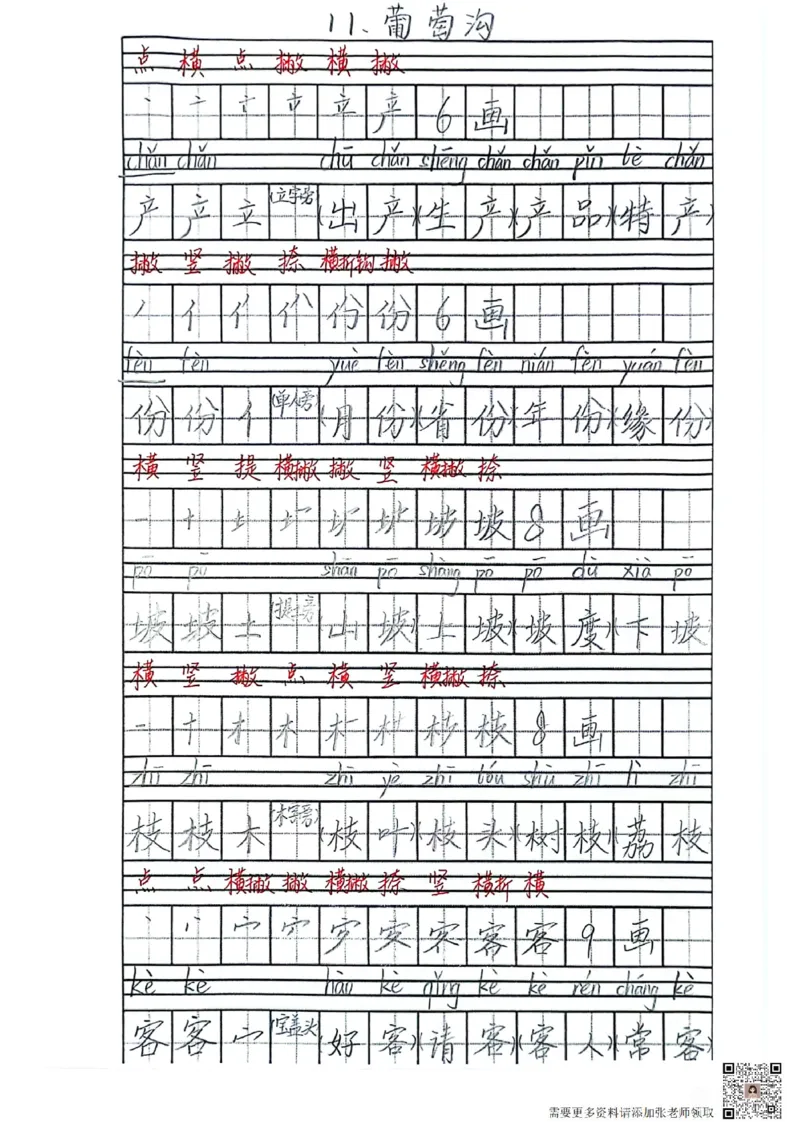 11、葡萄沟
点 横 点 撇 横 撇
产 6 画
chǎn chǎn chū chǎn shēng chǎn chǎn pǐn tè chǎn
产 产 立 (立字旁) (出 产)(生 产)(产 品)(特 产)
撇 竖 撇 捺 横折钩 撇
丿 亻 份 份 6 画
fèn fèn yuè fèn shěng fèn nián fèn yuán fèn
份 份 亻 (单人旁) (月 份)(省 份)(年 份)(缘 份)
横 竖 提 横撇 撇 竖 横撇 捺
一 十 坡 坡 8 画
pō pō shān pō shàng pō pō dù xià pō
坡 坡 土 (提土旁) (山 坡)(上 坡)(坡 度)(下 坡)
横 竖 撇 点 横 竖 横撇 捺
一 十 才 木 枝 8 画
zhī zhī zhī yè zhī tóu shù zhī lì zhī
枝 枝 木 (木字旁) (枝 叶)(枝 头)(树 枝)(荔 枝)
点 点 横撇 撇 横撇 捺 竖 横折 横
丶 宀 客 客 9 画
kè kè hào kè qǐng kè kè rén cháng kè
客 客 宀 (宝盖头) (好 客)(请 客)(客 人)(常 客)
需要更多资料请添加张老师领取